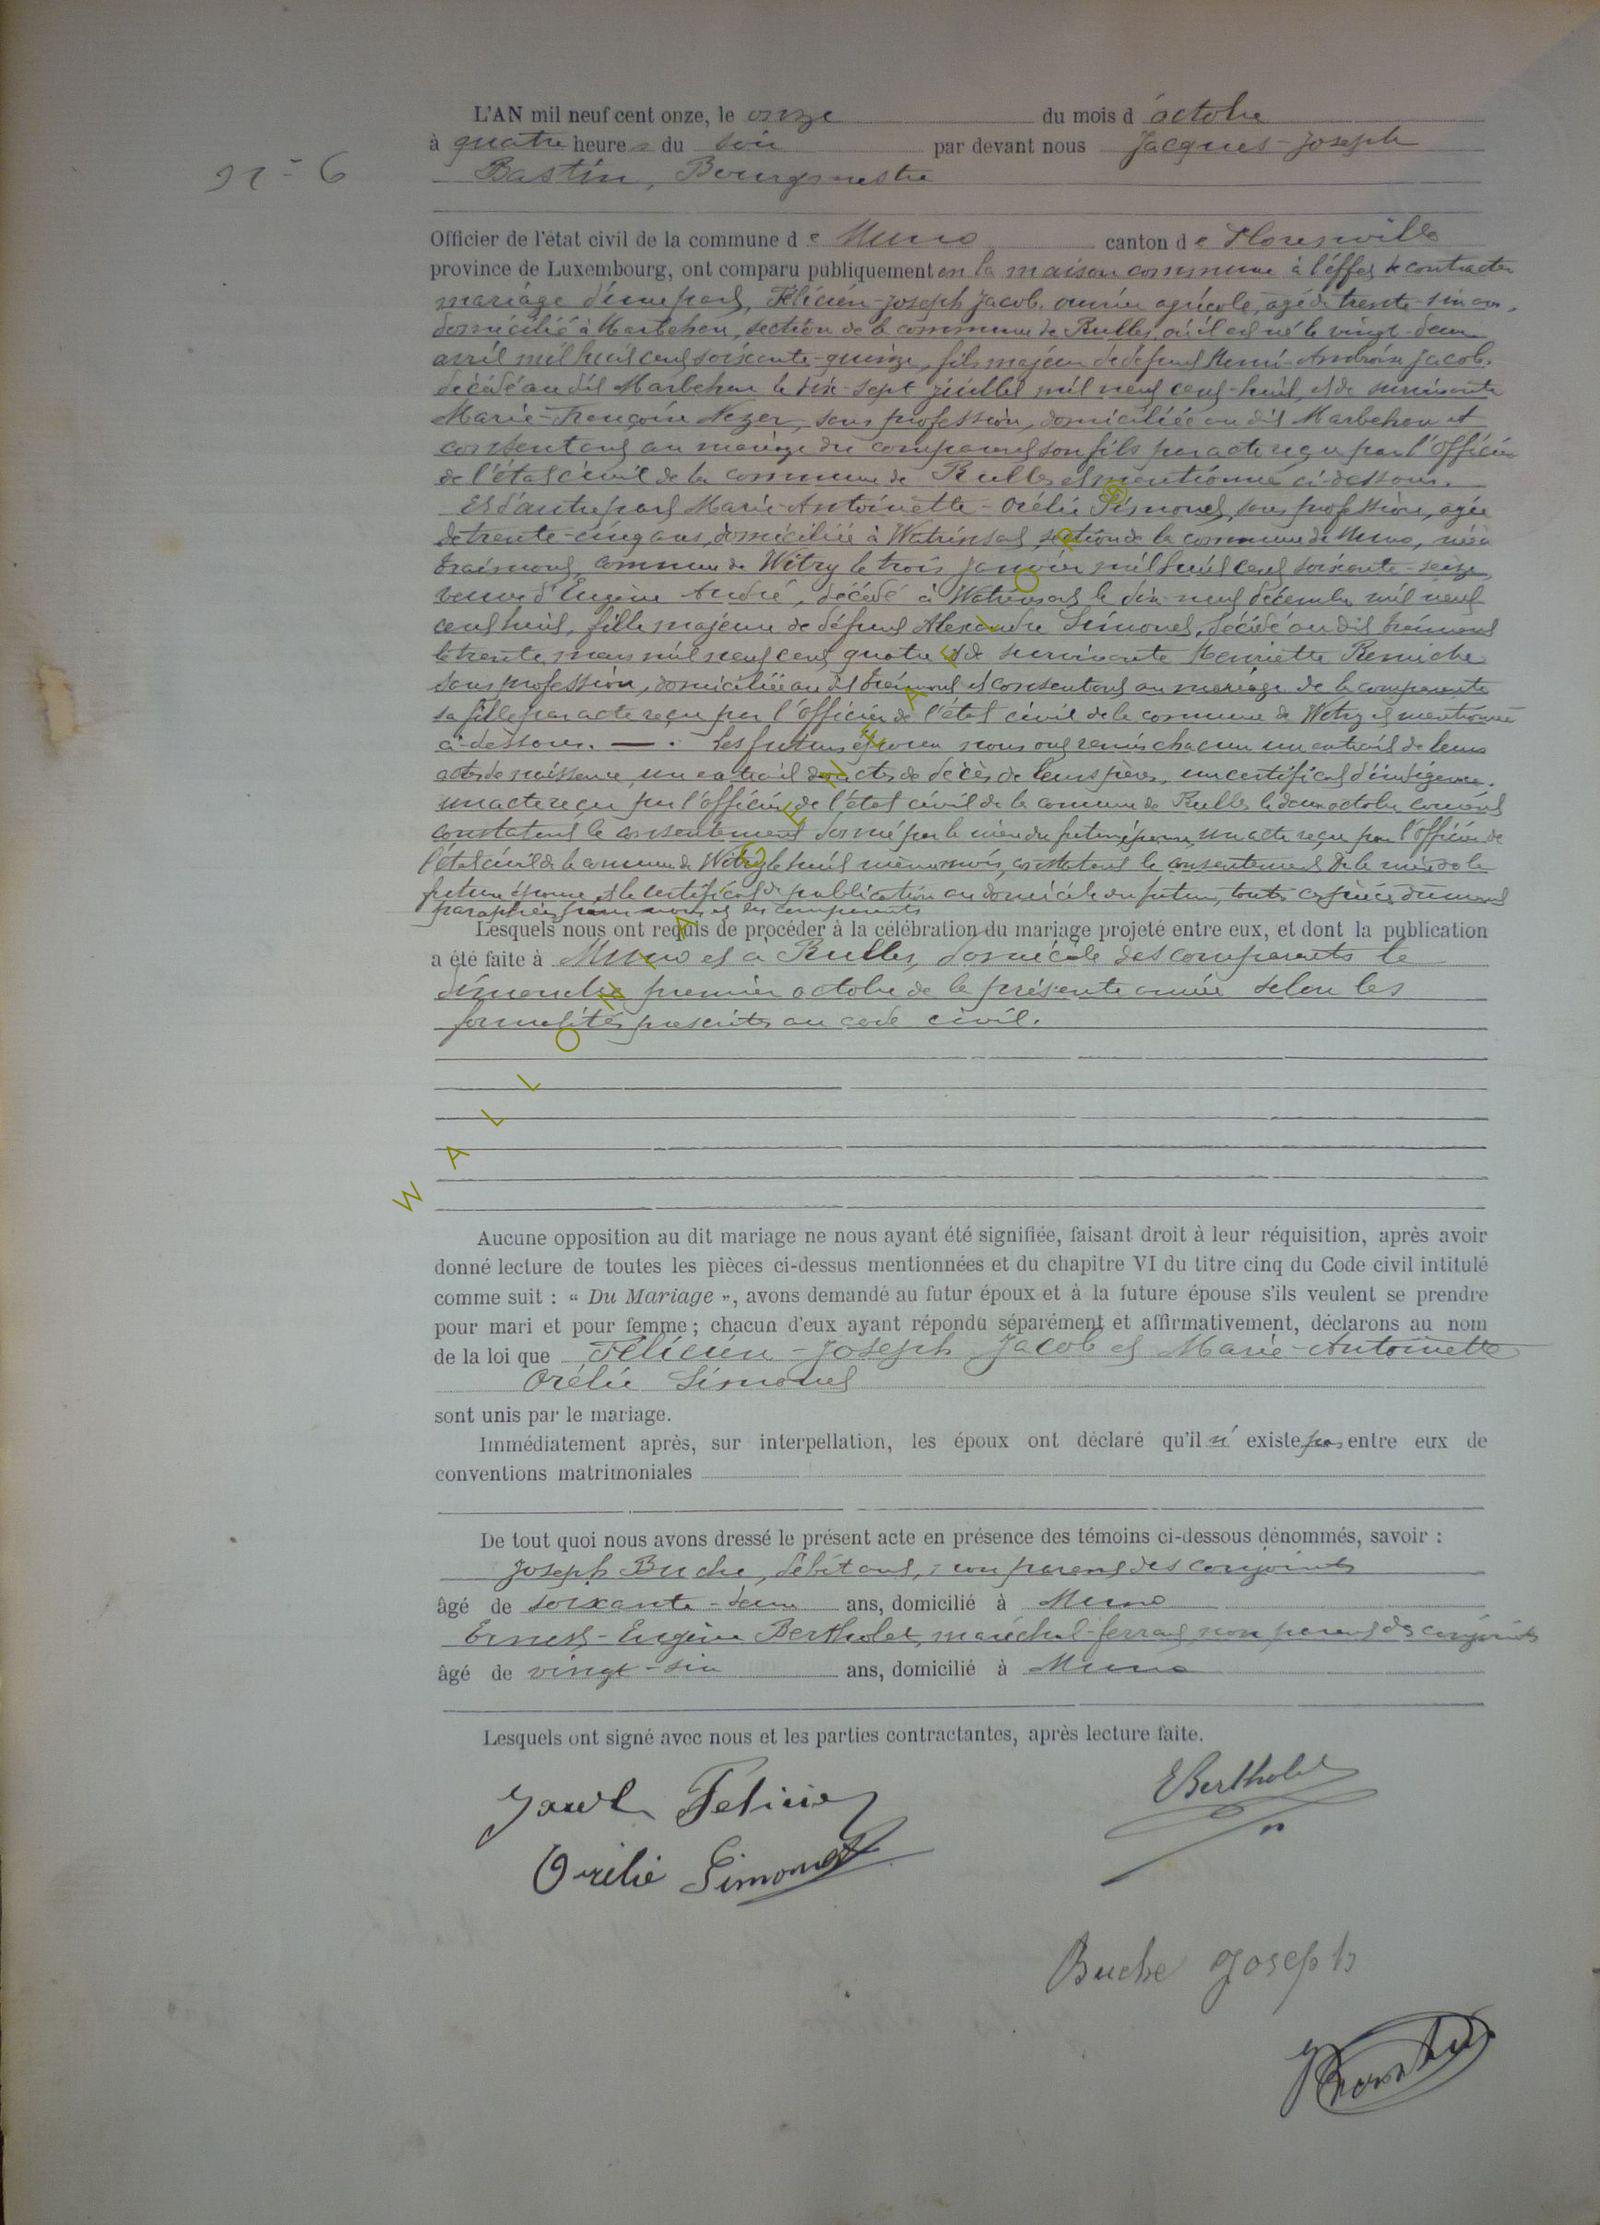 L'AN mil neuf cent onze, le onze du mois d'octobre
à quatre heures du soir par devant nous Jacques-Joseph
n° 6
Bastin, Bourgmestre
Officier de l'état civil de la commune de Muno canton de Florenville
province de Luxembourg, ont comparu publiquement en la maison commune à l'effet de contracter
mariage d'une part, Félicien-Joseph Jacob, ouvrier agricole, agé de trente-six ans,
domicilié à Marbehan, section de la commune de Rulles où il est né le vingt-deux
avril mil huit cent soixante-quinze, fils majeur de défunt Jacob,
décédé au dit Marbehan le dix-sept juillet mil neuf cent-huit, et de survivante
Marie-Françoise Nezer, sans profession, domiciliée au dit Marbehan et
consentant au mariage du comparant son fils par acte reçu par l'officier
de l'état civil de la commune de Rulles et mentionné ci-dessous.
Et d'autre part Marie-Antoinette-Orélie Simonet, sans profession, agée
de trente-cinq ans, domiciliée à Watrinsart, section de la commune de Muno, née à
Traimont, commune de Witry le trois janvier mil huit cent soixante-seize,
veuve d'Eugène André, décédé à Watrinsart le dix-neuf décembre mil neuf
cent huit, fille majeure de défunt Alexandre Simonet, décédé au dit Traimont
le trente mars mil neuf cent quatre et de survivante Henriette Remiche
sans profession, domiciliée au dit Traimont et consentant au mariage de la comparante
sa fille par acte reçu par l'officier de l'état civil de la commune de Witry et mentionné
ci-dessous. —. Les futurs époux nous ont remis chacun un extrait de leurs
actes de naissance, un extrait des actes de décès de leurs pères, un certificat d'indigence,
un acte reçu par l'officier de l'état civil de la commune de Rulles le deux octobre courant
constatant le consentement donné par la mère du futur époux, un acte reçu par l'officier de
l'état civil de la commune de Witry le huit même mois, constatant le consentement de la mère de la
future épouse, et le certificat de publication au domicile du futur, toutes ces pièces dument
paraphées par nous et les comparants
Lesquels nous ont requis de procéder à la célébration du mariage projeté entre eux, et dont la publication
a été faite à Muno et à Rulles, domicile des comparants le
dimanche premier octobre de la présente année selon les
formalités prescrites au code civil.
Aucune opposition au dit mariage ne nous ayant été signifiée, faisant droit à leur réquisition, après avoir
donné lecture de toutes les pièces ci-dessus mentionnées et du chapitre VI du titre cinq du Code civil intitulé
comme suit : « Du Mariage », avons demandé au futur époux et à la future épouse s'ils veulent se prendre
pour mari et pour femme ; chacun d'eux ayant répondu séparément et affirmativement, déclarons au nom
de la loi que Félicien-Joseph Jacob et Marie-Antoinette
Orélie Simonet
sont unis par le mariage.
Immédiatement après, sur interpellation, les époux ont déclaré qu'il n'existe pas entre eux de
conventions matrimoniales
De tout quoi nous avons dressé le présent acte en présence des témoins ci-dessous dénommés, savoir :
Joseph Buche, débitant, non parent des conjoints
âgé de soixante-deux ans, domicilié à Muno
Ernest-Eugène Bertholet, maréchal-ferrant, non parent des conjoints
âgé de vingt-six ans, domicilié à Muno
Lesquels ont signé avec nous et les parties contractantes, après lecture faite.
Jacob Felicien
EBertholet
Orélie Simonet
Buche Joseph
JBastin